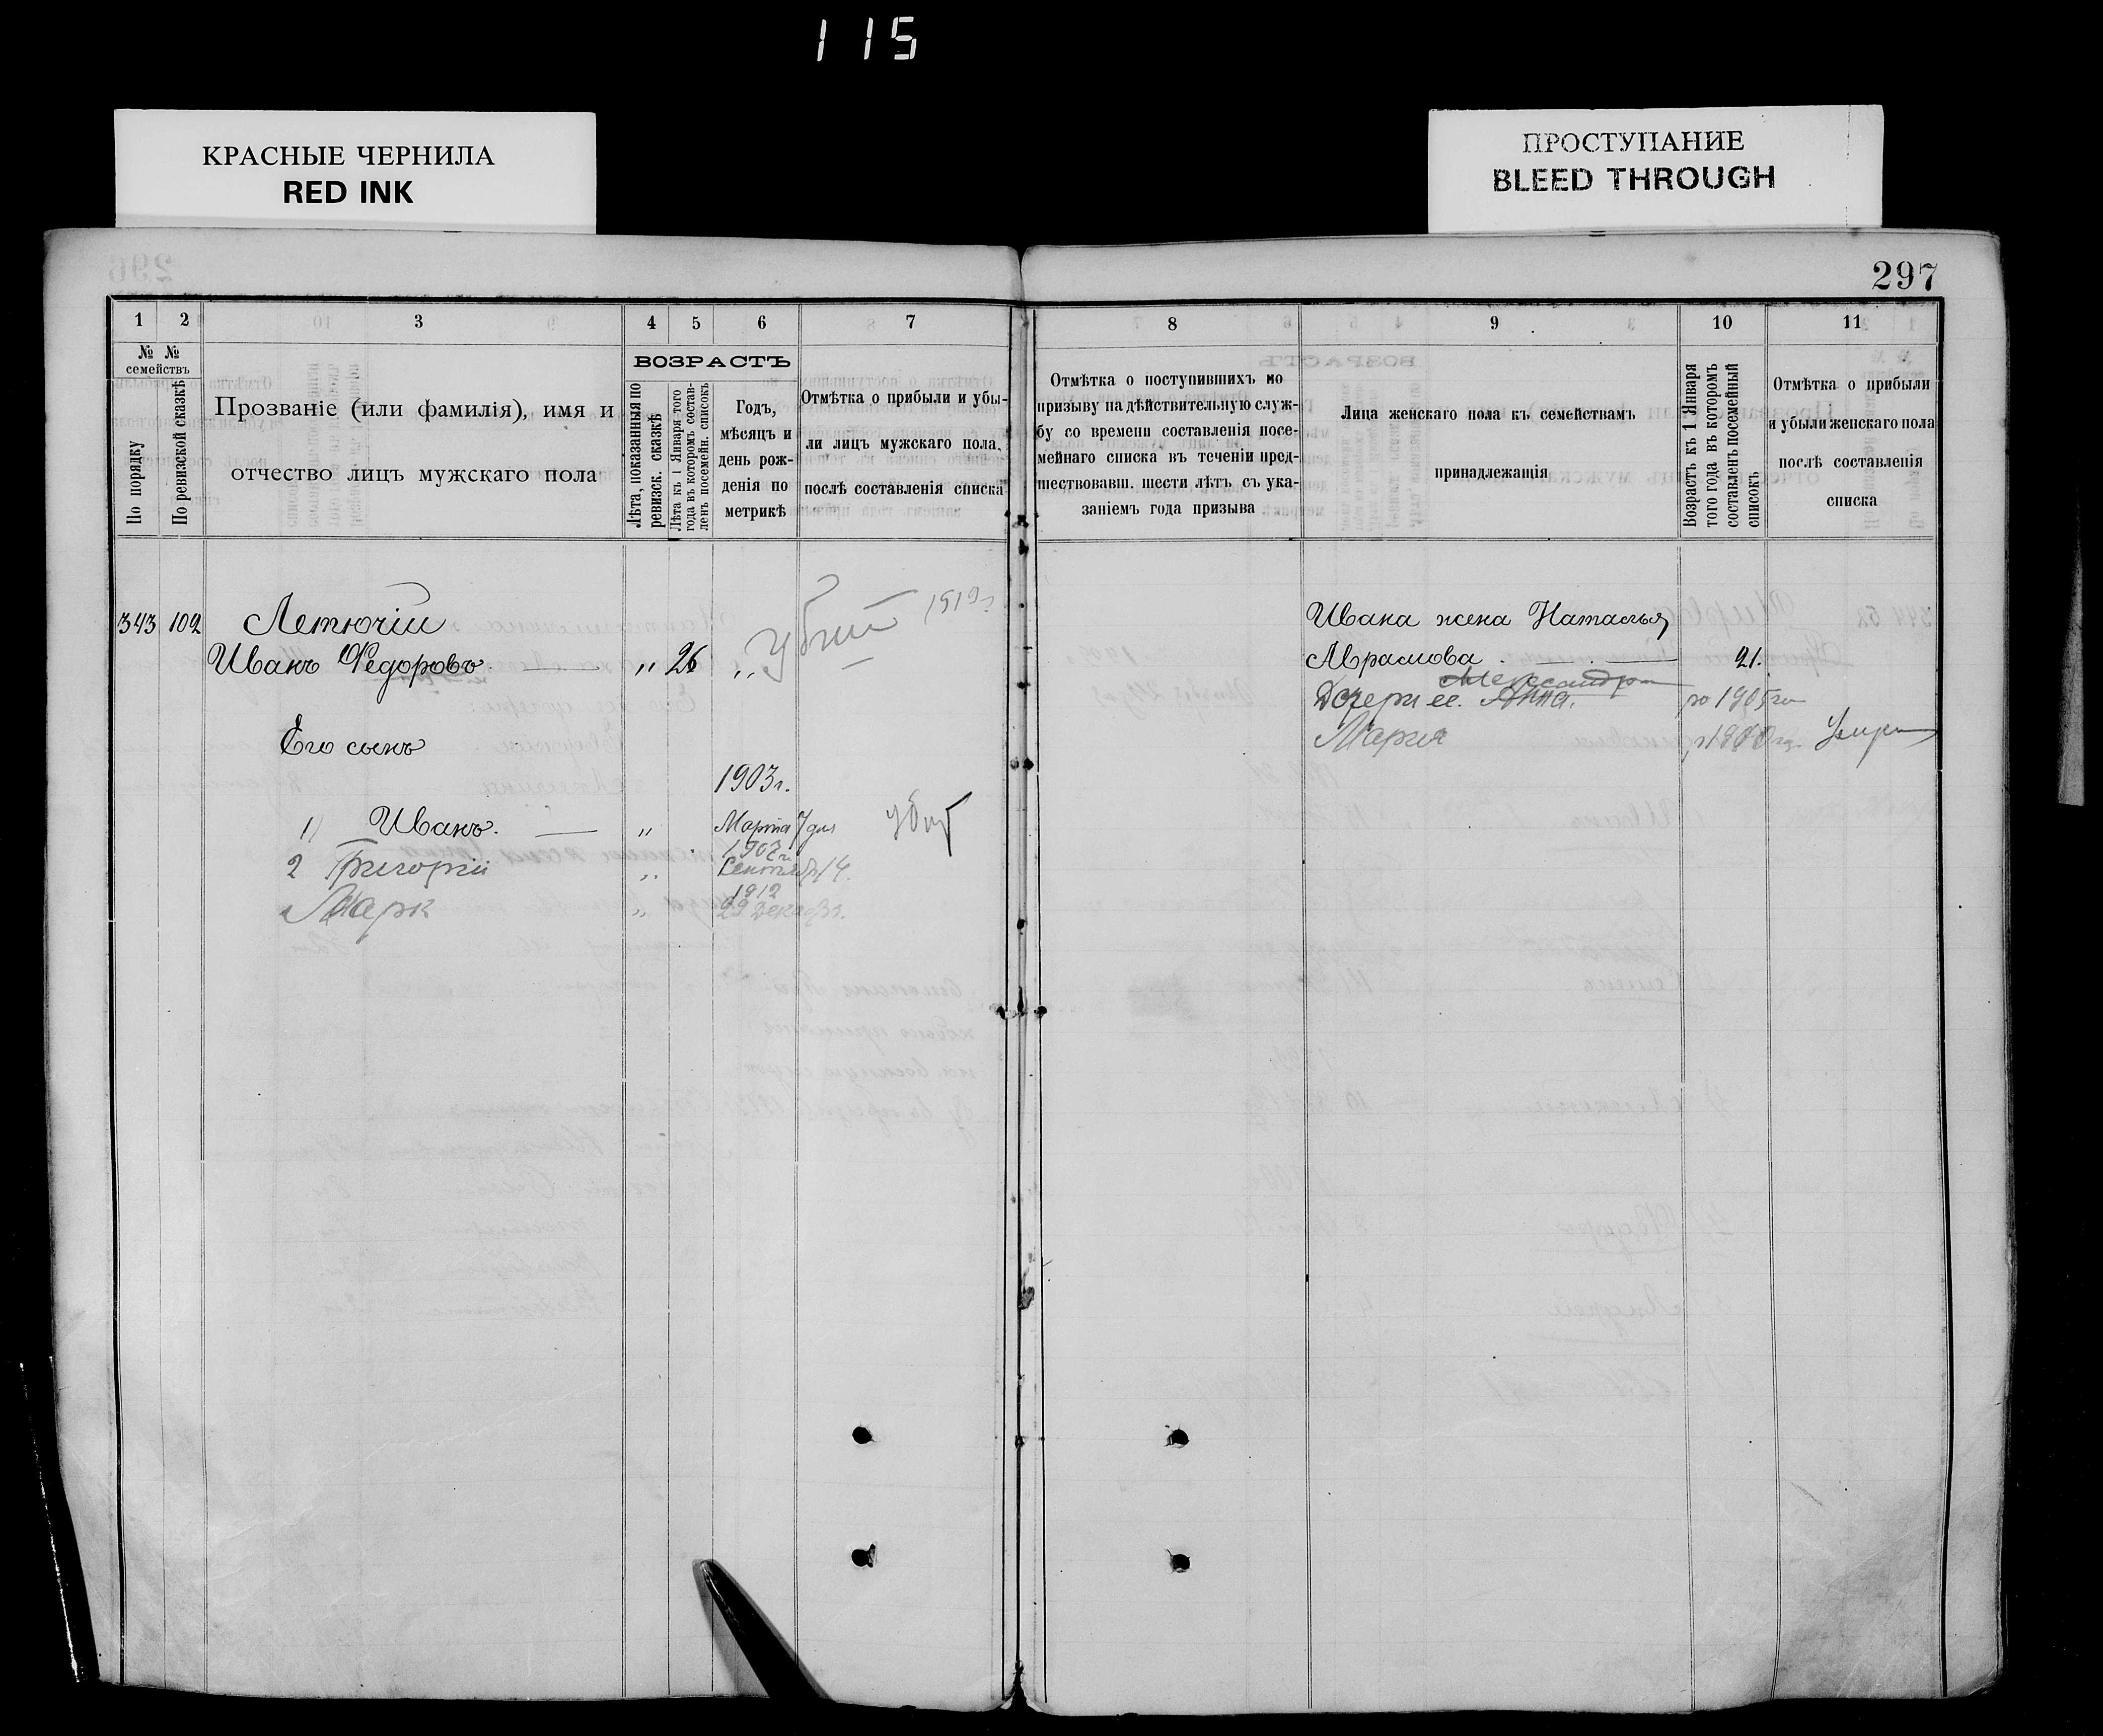 115
КРАСНЫЕ ЧЕРНИЛА
RED INK
ПРОСТУПАНИЕ
BLEED THROUGH
297
1 2 3 4 5 6 7
№ № семействъ
По порядку
По ревизской сказкѣ
Прозваніе (или фамилія), имя и
отчество лицъ мужскаго пола
ВОЗРАСТЪ
Лѣта, показанныя по
ревизск. сказкѣ
Лѣта къ 1 Января того
года въ которомъ состав-
ленъ посемейн. списокъ
Годъ,
мѣсяцъ и
день рож-
денія по
метрикѣ
Отмѣтка о прибыли и убы-
ли лицъ мужскаго пола,
послѣ составленія списка
8 9 10 11
Отмѣтка о поступившихъ по
призыву на дѣйствительную служ-
бу со времени составленія посе-
мейнаго списка въ теченіи пред-
шествовавш. шести лѣтъ съ ука-
заніемъ года призыва
Лица женскаго пола къ семействамъ
принадлежащія
Возрастъ къ 1 Января
того года въ которомъ
составленъ посемейный
списокъ
Отмѣтка о прибыли
и убыли женскаго пола
послѣ составленія
списка
343 102 Летючій
Иванъ Федоровъ — „ 26 „
Его сынъ
1903г.
1) Иванъ. — „ Марта 7 дня убит
1907г.
2 Григорій „ Сентября 14.
1912
Марк „ 29 Декабр.
Ивана жена Наталья
Аврамова — 21.
Александра
Дочери ее. Анна. 1905го
Мария